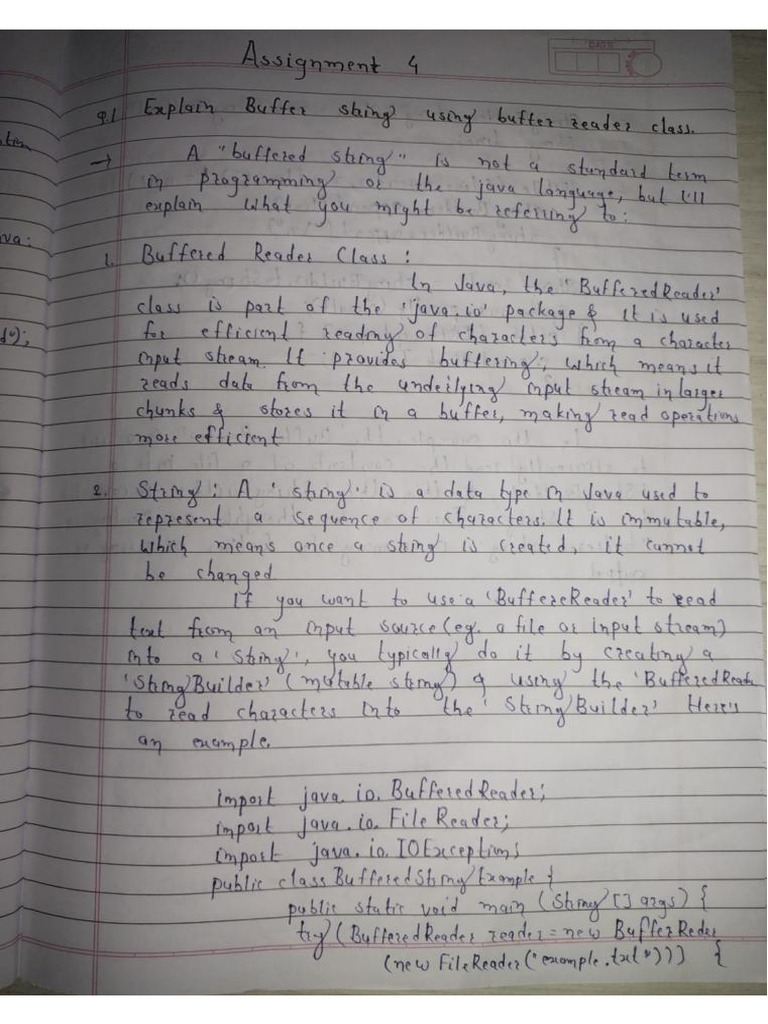 DATE
Assignment 4
Q.1 Explain Buffer string using buffer reader class.
→ A "buffered string" is not a standard term
in programming or the java language, but I'll
explain what you might be referring to:
1. Buffered Reader Class :
In Java, the 'BufferedReader'
class is part of the 'java.io' package & it is used
for efficient reading of characters from a character
input stream. It provides buffering, which means it
reads data from the underlying input stream in larger
chunks & stores it in a buffer, making read operations
more efficient
2. String : A 'string' is a data type in Java used to
represent a sequence of characters. It is immutable,
which means once a string is created, it cannot
be changed
If you want to use a 'BuffereReader' to read
text from an input source (eg. a file or input stream)
into a 'String', you typically do it by creating a
'StringBuilder' (mutable string) & using the 'BufferedReade
to read characters into the 'StringBuilder' Here's
an example.
import java.io.BufferedReader;
import java.io.FileReader;
import java.io.IOException;
public class BufferedStringExample {
public static void main (String [] args) {
try (BufferedReader reader = new BufferReder
(new FileReader("example.txt"))) {
va: